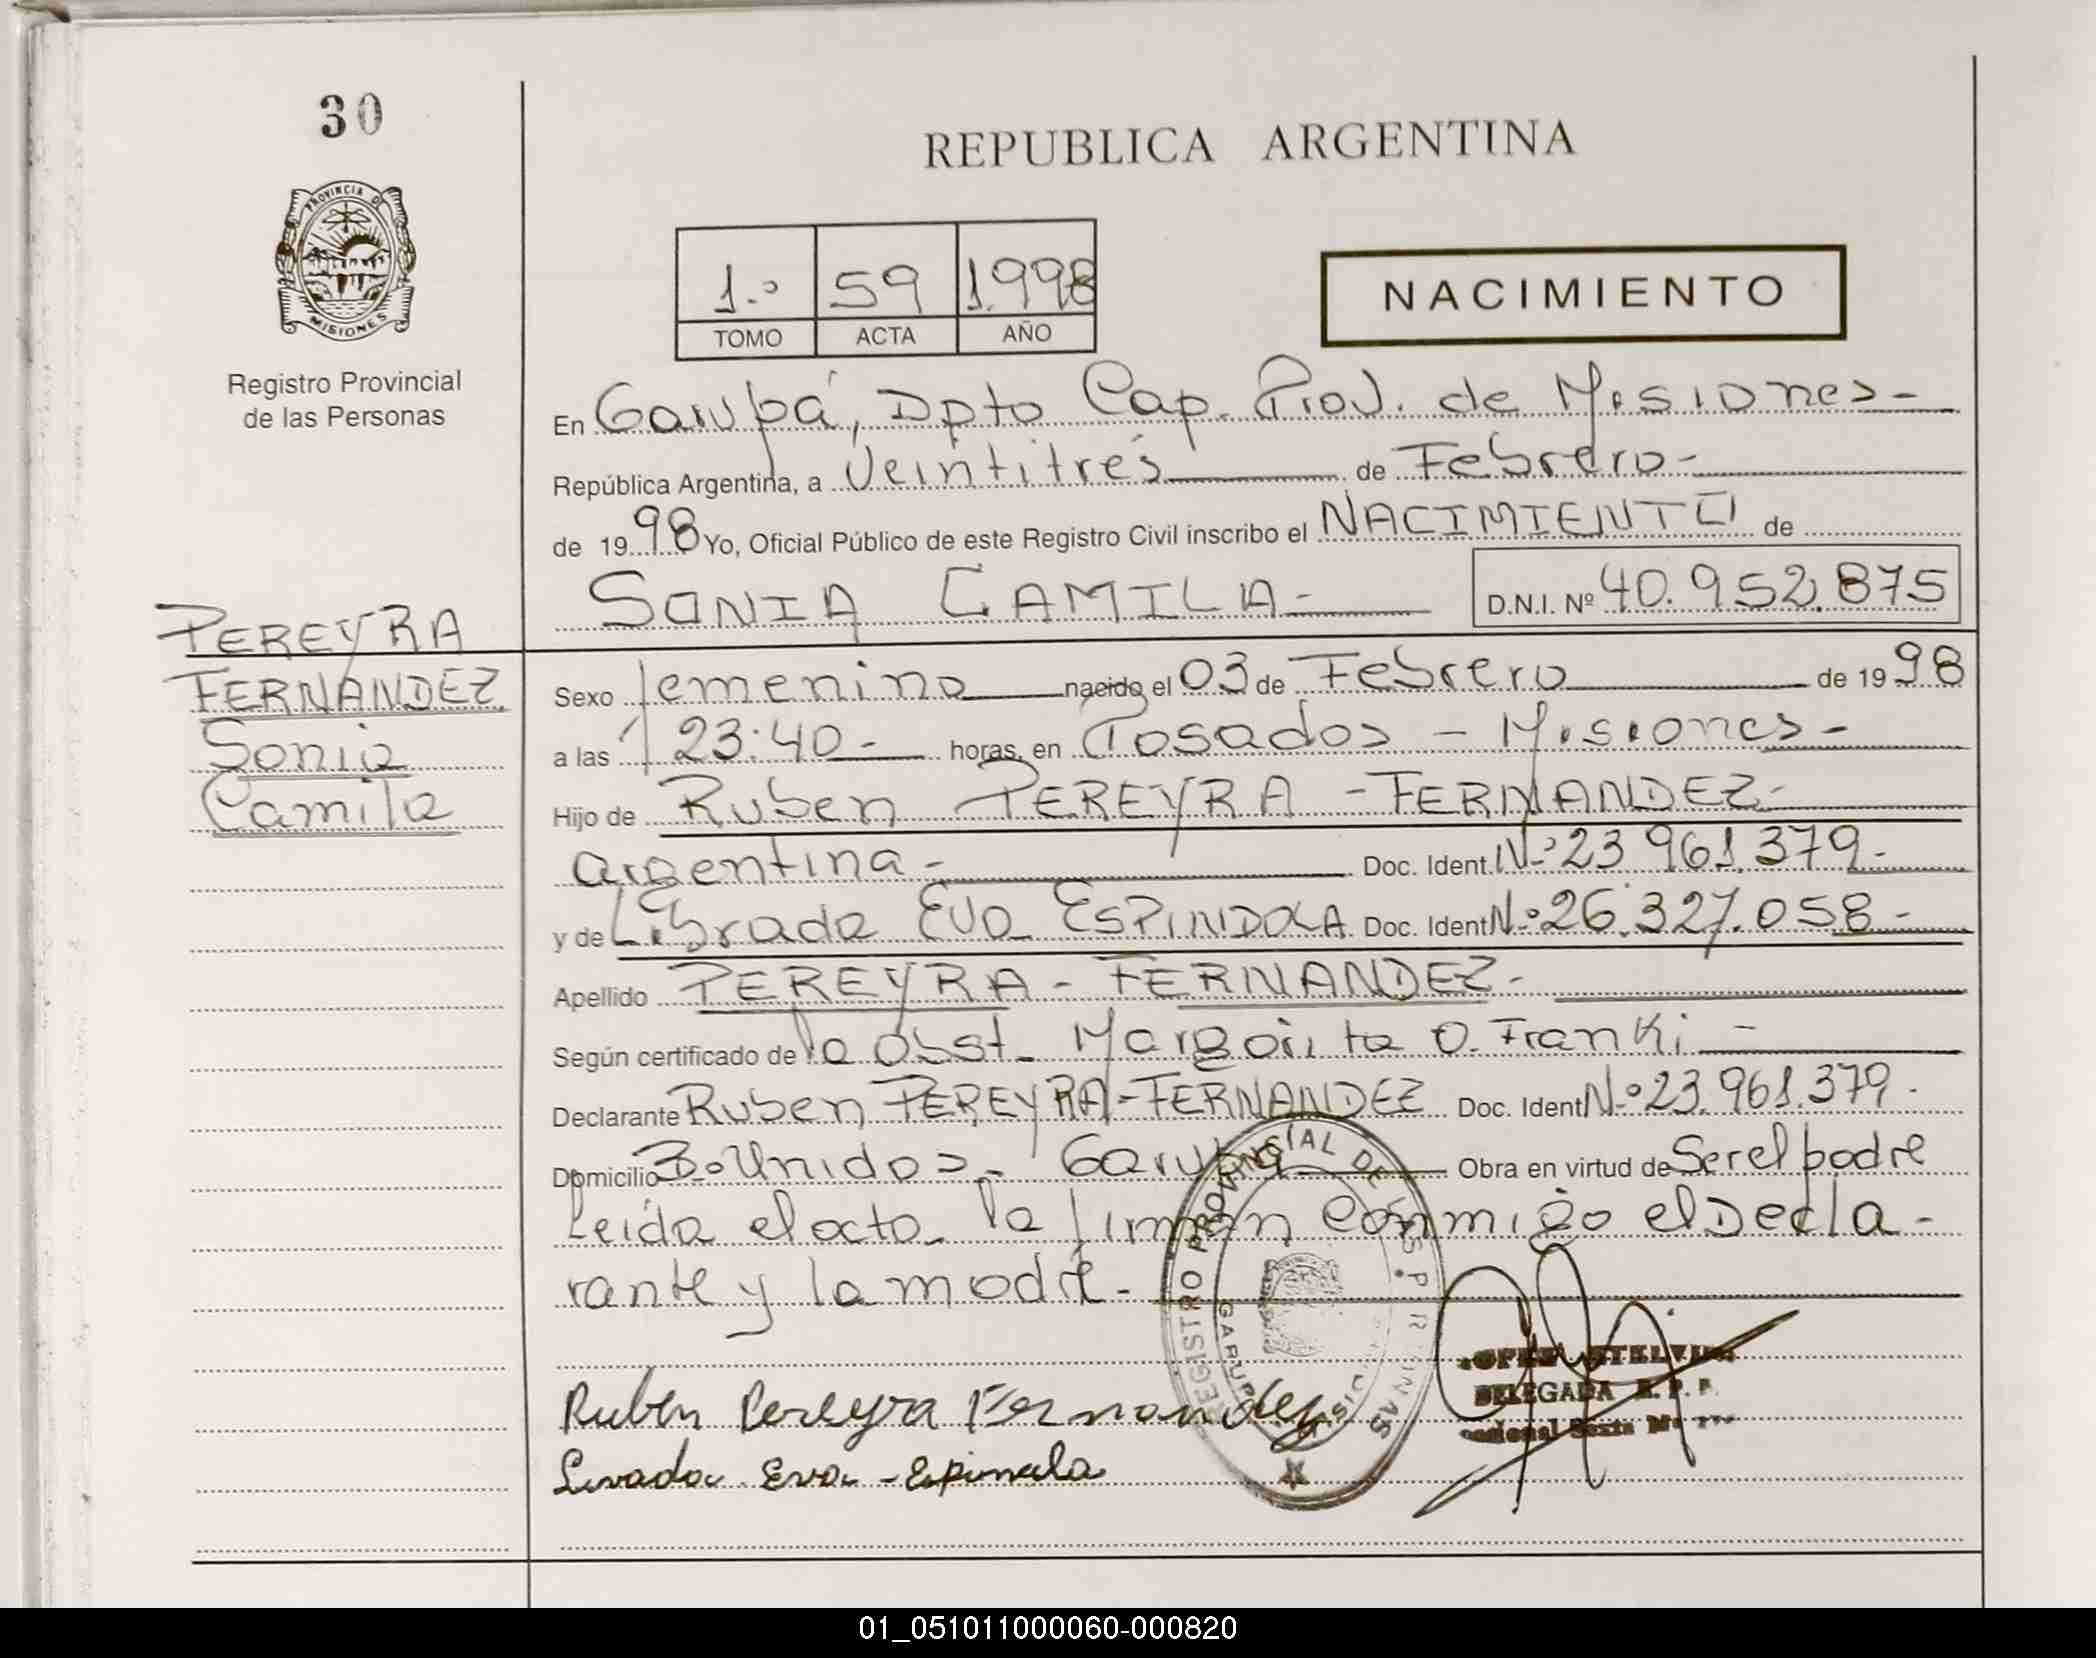 30
REPUBLICA ARGENTINA
PROVINCIA D
MISIONES
Registro Provincial
de las Personas
1.º 59 1.998
TOMO ACTA AÑO
NACIMIENTO
En Garupá, Dpto Cap. Prov. de Misiones-
República Argentina, a Veintitrés de Febrero-
de 1998 Yo, Oficial Público de este Registro Civil inscribo el NACIMIENTO de
SONIA CAMILA- D.N.I. Nº 40.952.875
PEREYRA
FERNANDEZ
Sonia
Camila
Sexo femenino nacido el 03 de Febrero de 1998
a las 23:40- horas, en Posadas - Misiones-
Hijo de Ruben PEREYRA - FERNANDEZ-
argentina- Doc. Ident. Nº 23.961.379-
y de Librada Eva ESPINDOLA Doc. Ident Nº 26.327.058-
Apellido PEREYRA - FERNANDEZ-
Según certificado de la Obst. Margarita O. Franki-
Declarante Ruben PEREYRA-FERNANDEZ Doc. Ident Nº 23.961.379.
Domicilio B. Unidos- Garupá Obra en virtud de Ser el padre
Leída el acta la firman conmigo el Decla-
rante y la madre-
REGISTRO PROVINCIAL DE LAS PERSONAS
GARUPA MISIONES
DELEGADA R. P. P.
Ruben Pereyra Fernandez
Eva - Espindola
01_051011000060-000820